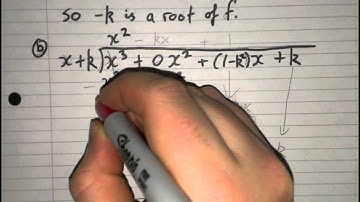 so -k is a root of f.
(b) x² - kx +
x+k) x³ + 0x² + (1-k²)x + k